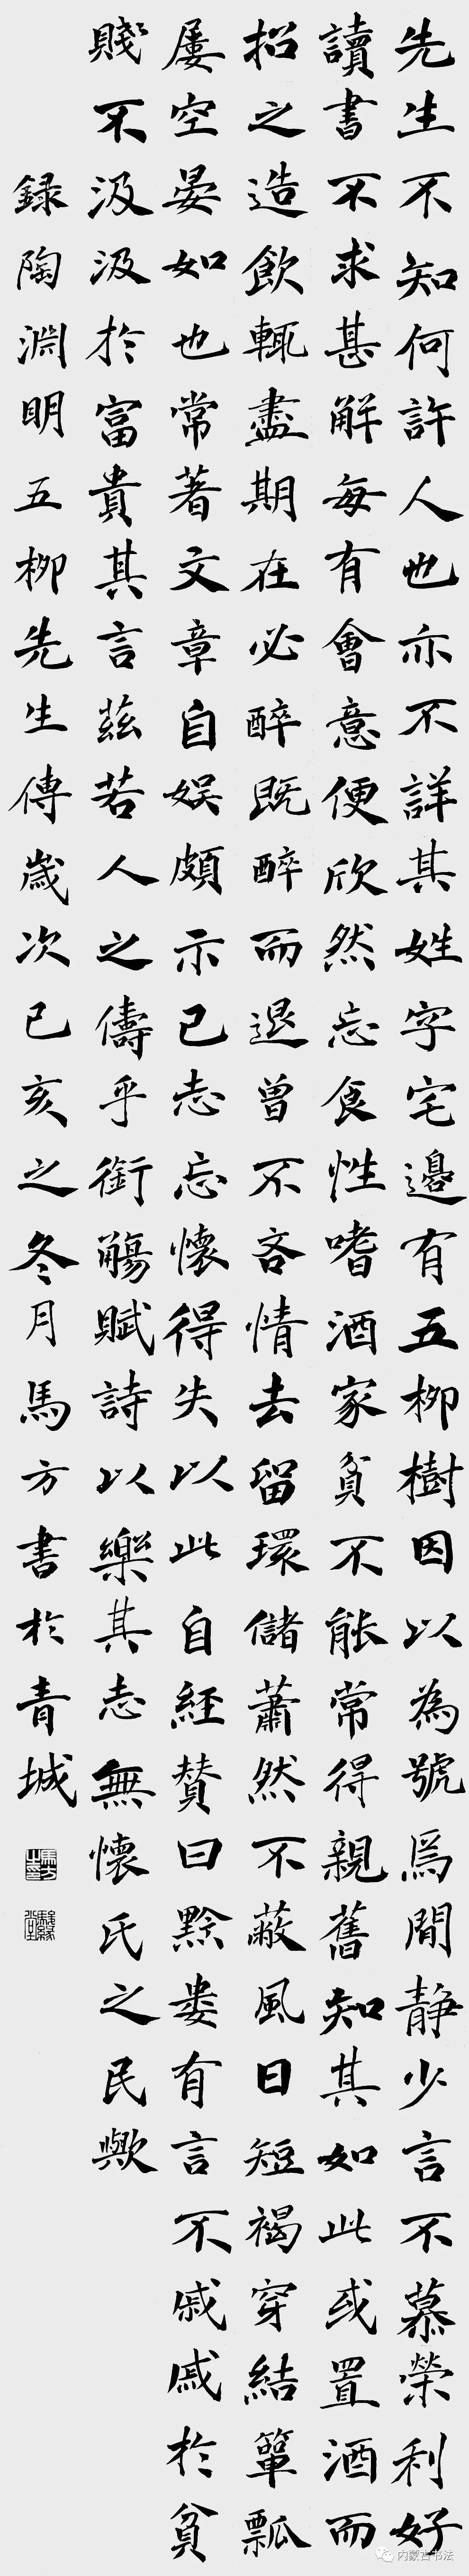 先生不知何許人也亦不詳其姓字宅邊有五柳樹因以為號焉閒静少言不慕榮利好
讀書不求甚解每有會意便欣然忘食性嗜酒家貧不能常得親舊知其如此或置酒而
招之造飲輒盡期在必醉既醉而退曾不吝情去留環儲蕭然不蔽風日短褐穿結簞瓢
屢空晏如也常著文章自娱頗示己志忘懷得失以此自經贊曰黔婁有言不戚戚於貧
賤不汲汲於富貴其言茲若人之儔乎銜觴賦詩以樂其志無懷氏之民歟
録陶淵明五柳先生傳歲次己亥之冬月馬方書於青城
馬方之印
内蒙古书法